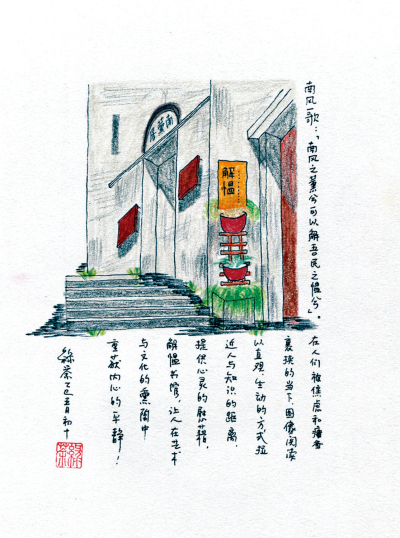 南薰
解愠
南风歌：「南风之薰兮可以解吾民之愠兮」。
在人们被焦虑和痛苦
裹挟的当下，图像阅读
以直观、生动的方式拉
近人与知识的距离，
提供心灵的慰藉，
解愠书馆，让人在艺术
与文化的熏陶中
重获内心的平静！
乙巳五月初十